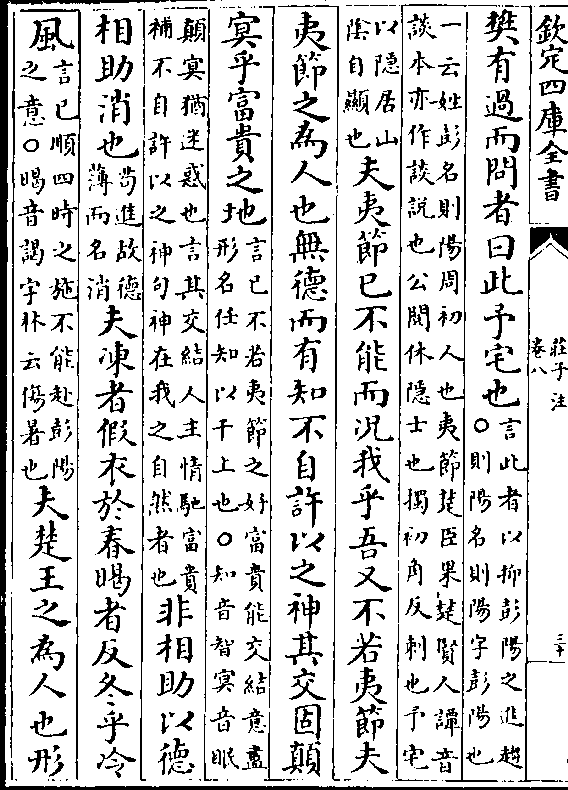 欽定四庫全書
莊子注
卷八
樊有過而問者曰此予宅也
言此者以抑彭陽之進趨
○則陽名則陽字彭陽也
一云姓彭名則陽周初人也夷節楚臣果楚賢人譚音
談本亦作談說也公閱休隱士也獨初角反刺也予宅
以隱居山
陰自顯也
夫夷節已不能而况我乎吾又不若夷節夫
夷節之為人也無德而有知不自許以之神其交固顛
冥乎富貴之地
言已不若夷節之好富貴能交結意盡
形名任知以干上也○知音智冥音眠
顛冥猶迷惑也言其交結人主情馳富貴
補不自許以之神句神在我之自然者也
非相助以德
相助消也
苟進故德
薄而名消
夫凍者假衣於春暍者反冬乎冷
風
言已順四時之施不能赴彭陽
之意○暍音謁字林云傷暑也
夫楚王之為人也形